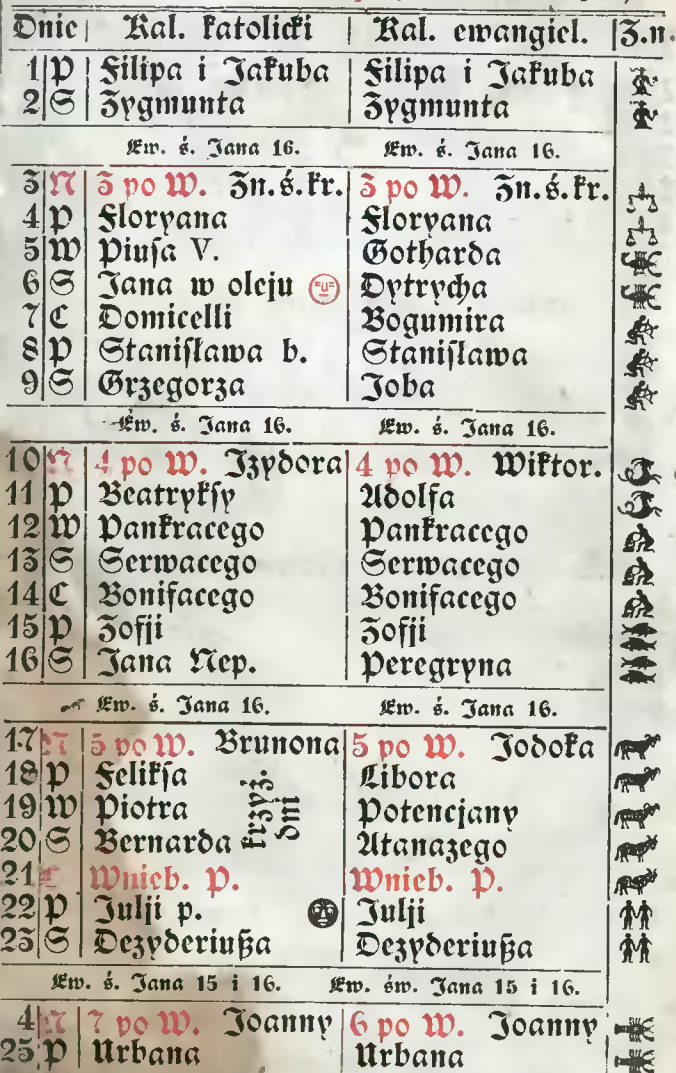 Dnie | Kal. katolicki | Kal. ewangiel. | Z.n.
1 P Filipa i Jakuba Filipa i Jakuba
2 S Zygmunta Zygmunta
Ew. ś. Jana 16. Ew. ś. Jana 16.
3 N 3 po W. Zn.ś.kr. 3 po W. Zn.ś.kr.
4 P Floryana Floryana
5 W Piuſa V. Gotharda
6 S Jana w oleju Dytrycha
7 C Domicelli Bogumira
8 P Staniſława b. Staniſława
9 S Grzegorza Joba
Ew. ś. Jana 16. Ew. ś. Jana 16.
10 N 4 po W. Izydora 4 po W. Wiktor.
11 P Beatrykſy Adolfa
12 W Pankracego Pankracego
13 S Serwacego Serwacego
14 C Bonifacego Bonifacego
15 P Zofji Zofji
16 S Jana Nep. Peregryna
Ew. ś. Jana 16. Ew. ś. Jana 16.
17 N 5 po W. Brunona 5 po W. Jodoka
18 P Felikſa Libora
19 W Piotra krzyż. dni Potencjany
20 S Bernarda Atanazego
21 C Wnieb. P. Wnieb. P.
22 P Julji p. Julji
23 S Dezyderiußa Dezyderiußa
Ew. ś. Jana 15 i 16. Ew. św. Jana 15 i 16.
4 N 7 po W. Joanny 6 po W. Joanny
25 P Urbana Urbana